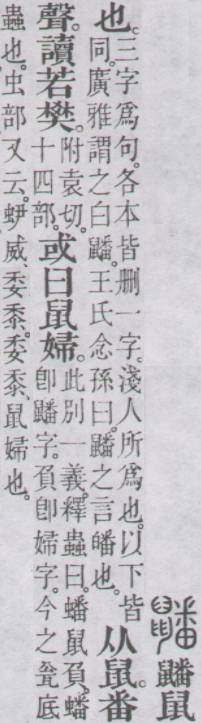 䶈 䶈鼠
也。三字爲句。各本皆刪一字。淺人所爲也。以下皆同。廣雅謂之白䶈。王氏念孫曰。䶈之言皤也。从鼠。番
聲。讀若樊。附袁切。十四部。或曰鼠婦。此別一義。釋蟲曰。蟠鼠負。蟠卽䶈字。負卽婦字。今之瓮底
蟲也。虫部又云。蛜威、委黍。委黍、鼠婦也。